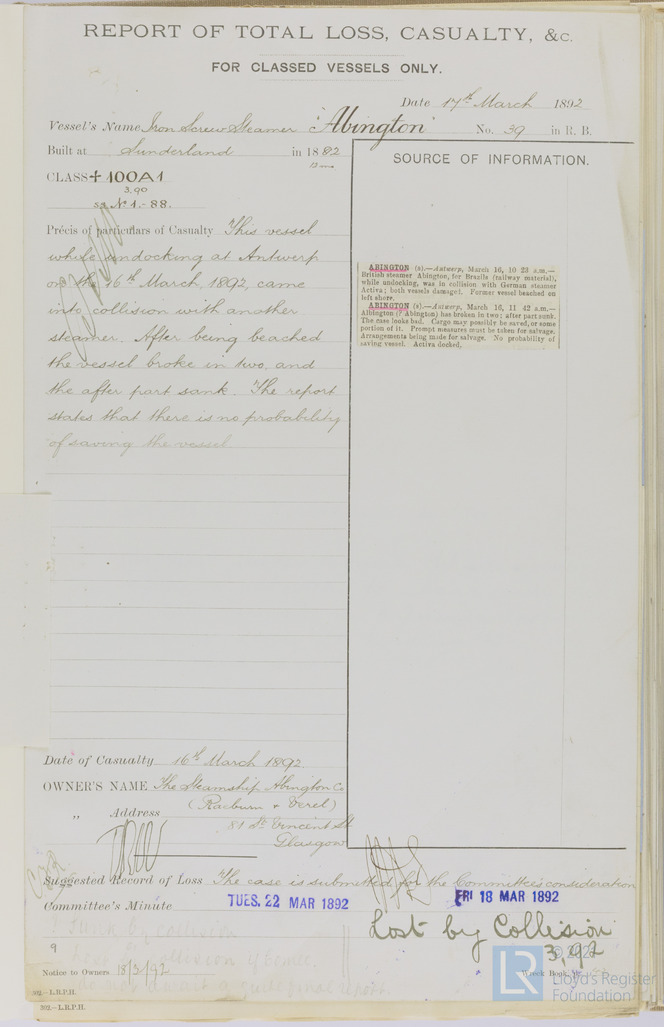 REPORT OF TOTAL LOSS, CASUALTY, &c.
FOR CLASSED VESSELS ONLY.
Date 17th March 1892
Vessel's Name Iron Screw Steamer "Abington" No. 39 in R. B.
Built at Sunderland in 1882
CLASS + 100A1
3,90
ss No 1.-88.
Précis of particulars of Casualty This vessel
while undocking at Antwerp
on the 16th March, 1892, came
into collision with another
steamer. After being beached
the vessel broke in two, and
the after part sank. The report
states that there is no probability
of saving the vessel
SOURCE OF INFORMATION.
ABINGTON (s).—Antwerp, March 16, 10 23 a.m.—
British steamer Abington, for Brazils (railway material),
while undocking, was in collision with German steamer
Activa; both vessels damaged. Former vessel beached on
left shore.
ABINGTON (s).—Antwerp, March 16, 11 42 a.m.—
Albington (? Abington) has broken in two; after part sunk.
The case looks bad. Cargo may possibly be saved, or some
portion of it. Prompt measures must be taken for salvage.
Arrangements being made for salvage. No probability of
saving vessel. Activa docked.
Date of Casualty 16th March 1892.
OWNER'S NAME The Steamship Abington Co
(Raeburn & Verel)
„ Address 81 St. Vincent St
Glasgow
Suggested Record of Loss The case is submitted for the Committee's consideration
Committee's Minute TUES. 22 MAR 1892 FRI 18 MAR 1892
Lost by Collision
3,92
Sunk by collision
9
Notice to Owners 18/3/92 Wreck Book
© 202
Lloyd's Register
Foundation
LR
302.—L.R.P.H.
302.—L.R.P.H.